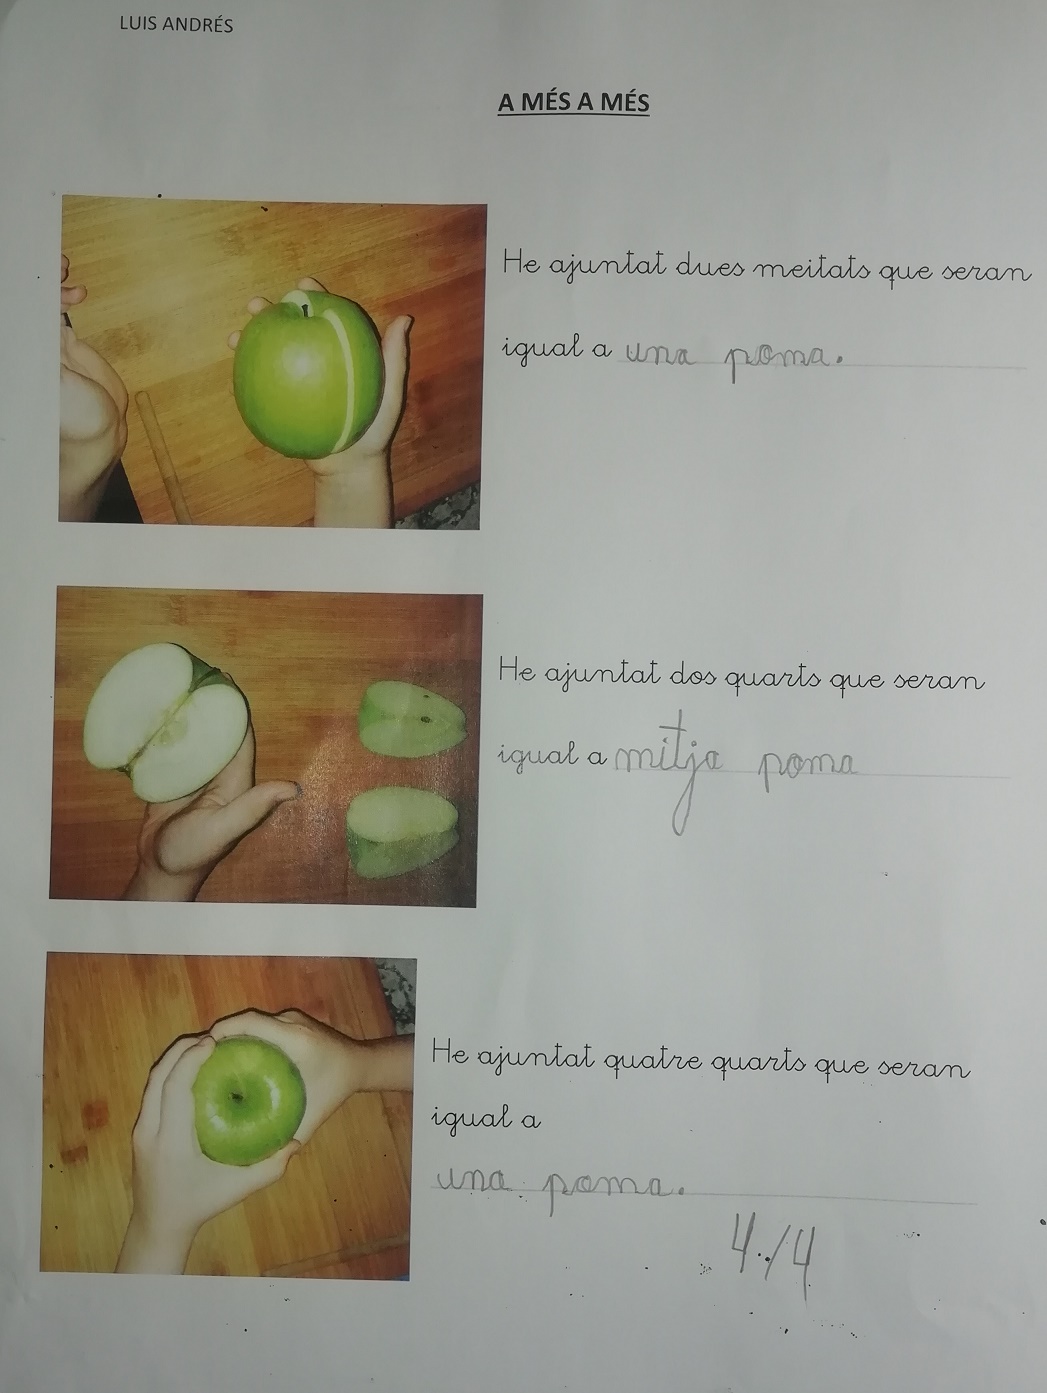 LUIS ANDRÉS
A MÉS A MÉS
He ajuntat dues meitats que seran
igual a una poma.
He ajuntat dos quarts que seran
igual a mitja poma
He ajuntat quatre quarts que seran
igual a
una poma.
4/4